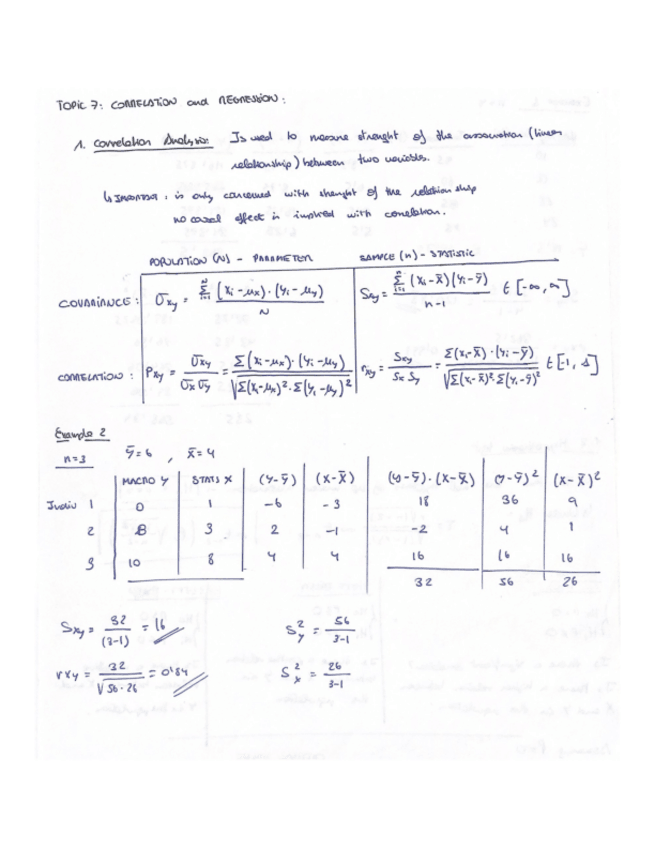 TOPIC 7: CORRELATION and REGRESSION:
1. Correlation Analysis: Is used to measure strenght of the association (linear
relationship) between two variables.
↳ IMPORTANT: is only concerned with strenght of the relationship
no causal effect is implied with correlation.
POPULATION (N) - PARAMETER SAMPLE (n) - STATISTIC
COVARIANCE: σxy = Σ(i=1..N) (xi - μx)·(yi - μy) / N Sxy = Σ(i=1..n) (xi - x̄)(yi - ȳ) / n-1 ∈ [-∞, ∞]
CORRELATION: ρxy = σxy / σx σy = Σ(xi - μx)·(yi - μy) / √Σ(xi - μx)²·Σ(yi - μy)² rxy = Sxy / Sx Sy = Σ(xi - x̄)·(yi - ȳ) / √Σ(xi - x̄)²·Σ(yi - ȳ)² ∈ [-1, 1]
Example 2
n=3 ȳ=6 , x̄=4
MACRO Y STATS X (y-ȳ) (x-x̄) (y-ȳ)·(x-x̄) (y-ȳ)² (x-x̄)²
1 0 1 -6 -3 18 36 9
2 8 3 2 -1 -2 4 1
3 10 8 4 4 16 16 16
32 56 26
Sxy = 32 / (3-1) = 16 S²y = 56 / 3-1
rxy = 32 / √56·26 = 0'84 S²x = 26 / 3-1